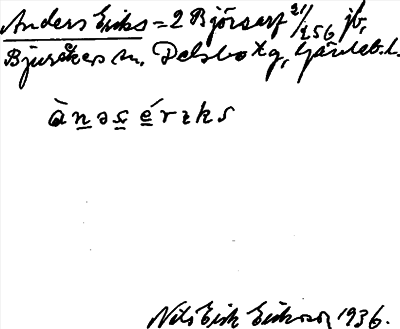 Anders Eriks = 2 Björsarf 21/256 jb,
Bjuråkers sn, Delsbo tg, Gävleb.l.
ànəs érɪks
Nils Erik Eriksson 1936.